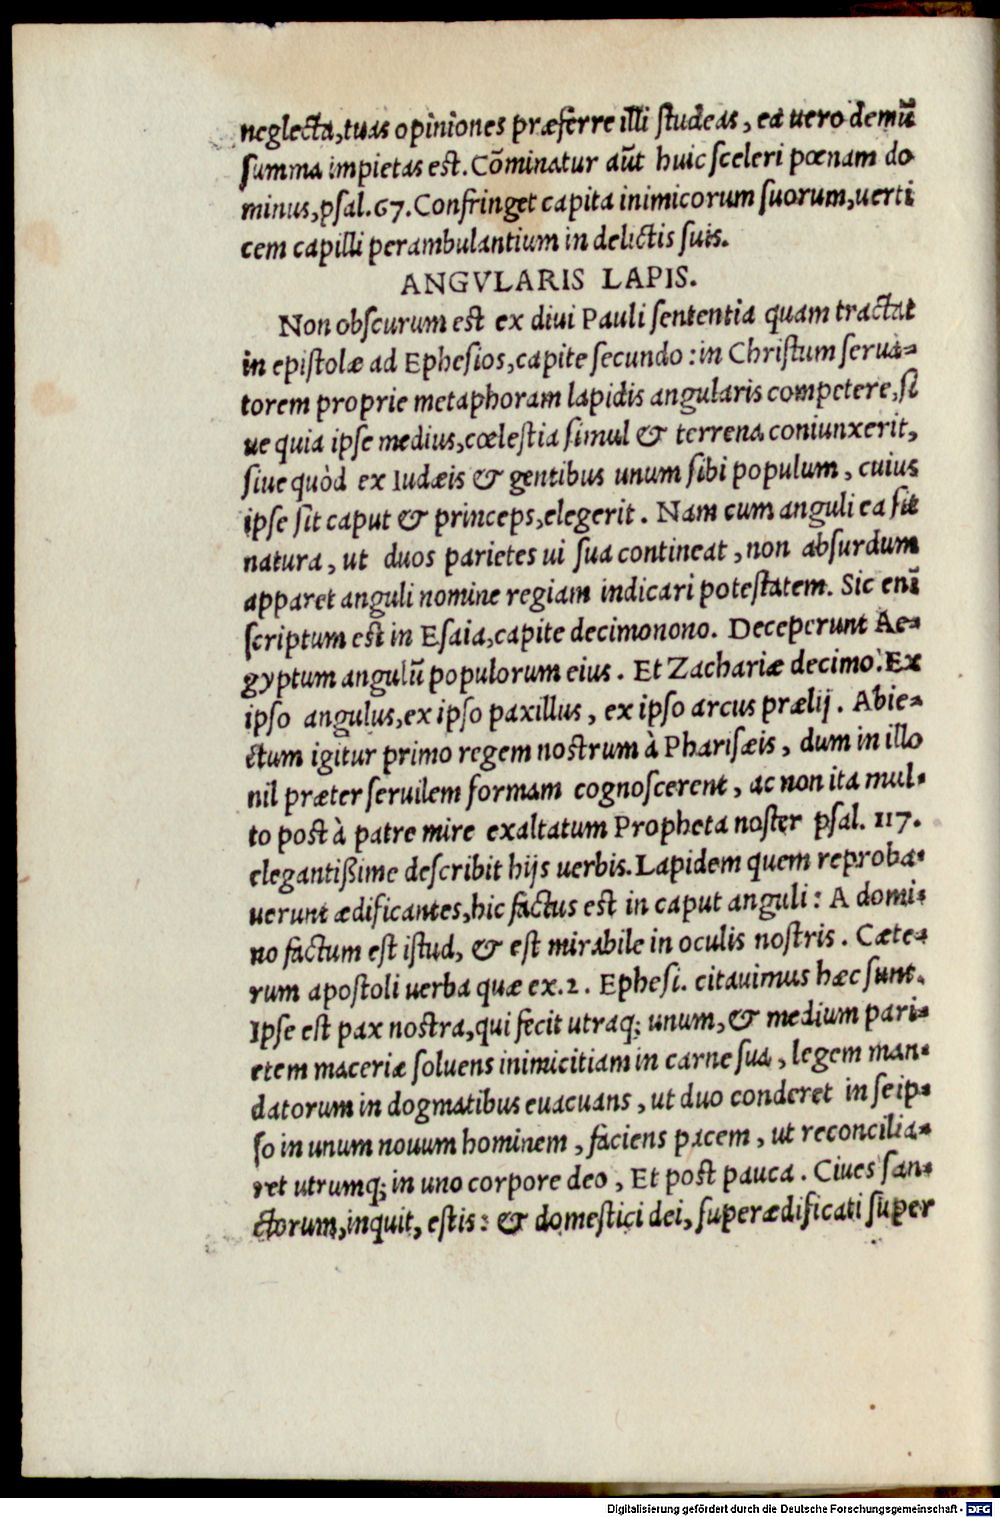 neglecta, tuas opiniones præferre illi studeas, ea uero demū
summa impietas est. Cōminatur aūt huic sceleri pœnam do
minus, psal. 67. Confringet capita inimicorum suorum, uerti
cem capilli perambulantium in delictis suis.
ANGVLARIS LAPIS.
Non obscurum est ex diui Pauli sententia quam tractat
in epistolæ ad Ephesios, capite secundo: in Christum serua-
torem proprie metaphoram lapidis angularis competere, si
ue quia ipse medius, cœlestia simul & terrena coniunxerit,
siue quòd ex Iudæis & gentibus unum sibi populum, cuius
ipse sit caput & princeps, elegerit. Nam cum anguli ea sit
natura, ut duos parietes ui sua contineat, non absurdum
apparet anguli nomine regiam indicari potestatem. Sic enī
scriptum est in Esaia, capite decimonono. Deceperunt Ae-
gyptum angulū populorum eius. Et Zachariæ decimo. Ex
ipso angulus, ex ipso paxillus, ex ipso arcus prælij. Abie-
ctum igitur primo regem nostrum à Pharisæis, dum in illo
nil præter seruilem formam cognoscerent, ac non ita mul-
to post à patre mire exaltatum Propheta noster psal. 117.
elegantißime describit hijs uerbis. Lapidem quem reproba-
uerunt ædificantes, hic factus est in caput anguli: A domi-
no factum est istud, & est mirabile in oculis nostris. Cæte-
rum apostoli uerba quæ ex. 2. Ephesi. citauimus hæc sunt.
Ipse est pax nostra, qui fecit utraq; unum, & medium pari-
etem maceriæ soluens inimicitiam in carne sua, legem man-
datorum in dogmatibus euacuans, ut duo conderet in seip-
so in unum nouum hominem, faciens pacem, ut reconcilia-
ret utrumq; in uno corpore deo, Et post pauca. Ciues san-
ctorum, inquit, estis: & domestici dei, superædificati super
Digitalisierung gefördert durch die Deutsche Forschungsgemeinschaft - DFG